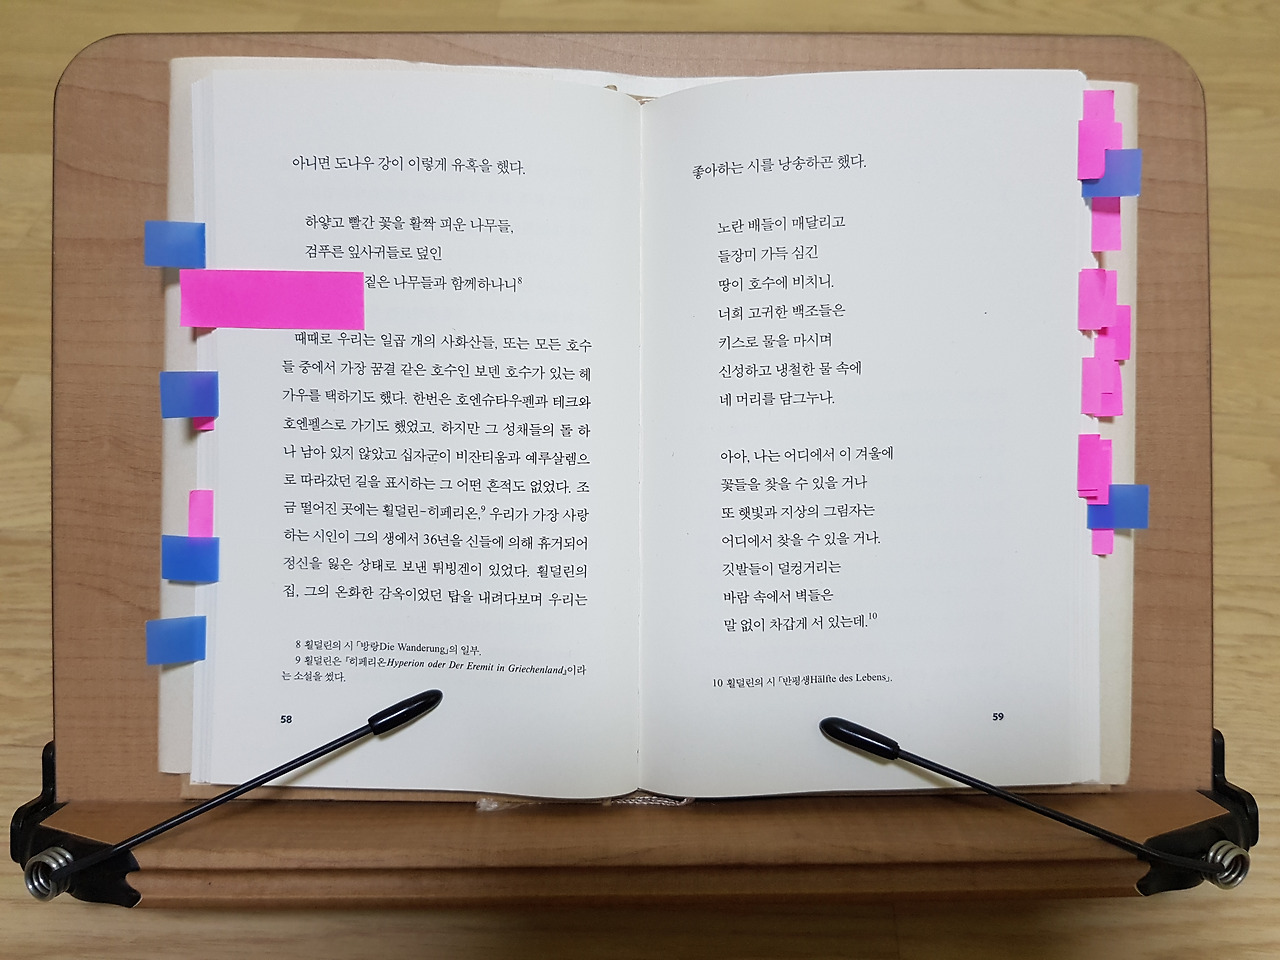 아니면 도나우 강이 이렇게 유혹을 했다.
하얗고 빨간 꽃을 활짝 피운 나무들,
검푸른 잎사귀들로 덮인
짙은 나무들과 함께하나니8
때때로 우리는 일곱 개의 사화산들, 또는 모든 호수
들 중에서 가장 꿈결 같은 호수인 보덴 호수가 있는 헤
가우를 택하기도 했다. 한번은 호엔슈타우펜과 테크와
호엔펠스로 가기도 했었고. 하지만 그 성채들의 돌 하
나 남아 있지 않았고 십자군이 비잔티움과 예루살렘으
로 따라갔던 길을 표시하는 그 어떤 흔적도 없었다. 조
금 떨어진 곳에는 횔덜린-히페리온,9 우리가 가장 사랑
하는 시인이 그의 생에서 36년을 신들에 의해 휴거되어
정신을 잃은 상태로 보낸 튀빙겐이 있었다. 횔덜린의
집, 그의 온화한 감옥이었던 탑을 내려다보며 우리는
8 횔덜린의 시 「방랑Die Wanderung」의 일부.
9 횔덜린은 「히페리온Hyperion oder Der Eremit in Griechenland」이라
는 소설을 썼다.
58
좋아하는 시를 낭송하곤 했다.
노란 배들이 매달리고
들장미 가득 심긴
땅이 호수에 비치니.
너희 고귀한 백조들은
키스로 물을 마시며
신성하고 냉철한 물 속에
네 머리를 담그누나.
아아, 나는 어디에서 이 겨울에
꽃들을 찾을 수 있을 거나
또 햇빛과 지상의 그림자는
어디에서 찾을 수 있을 거나.
깃발들이 덜컹거리는
바람 속에서 벽들은
말 없이 차갑게 서 있는데.10
10 횔덜린의 시 「반평생Hälfte des Lebens」.
59